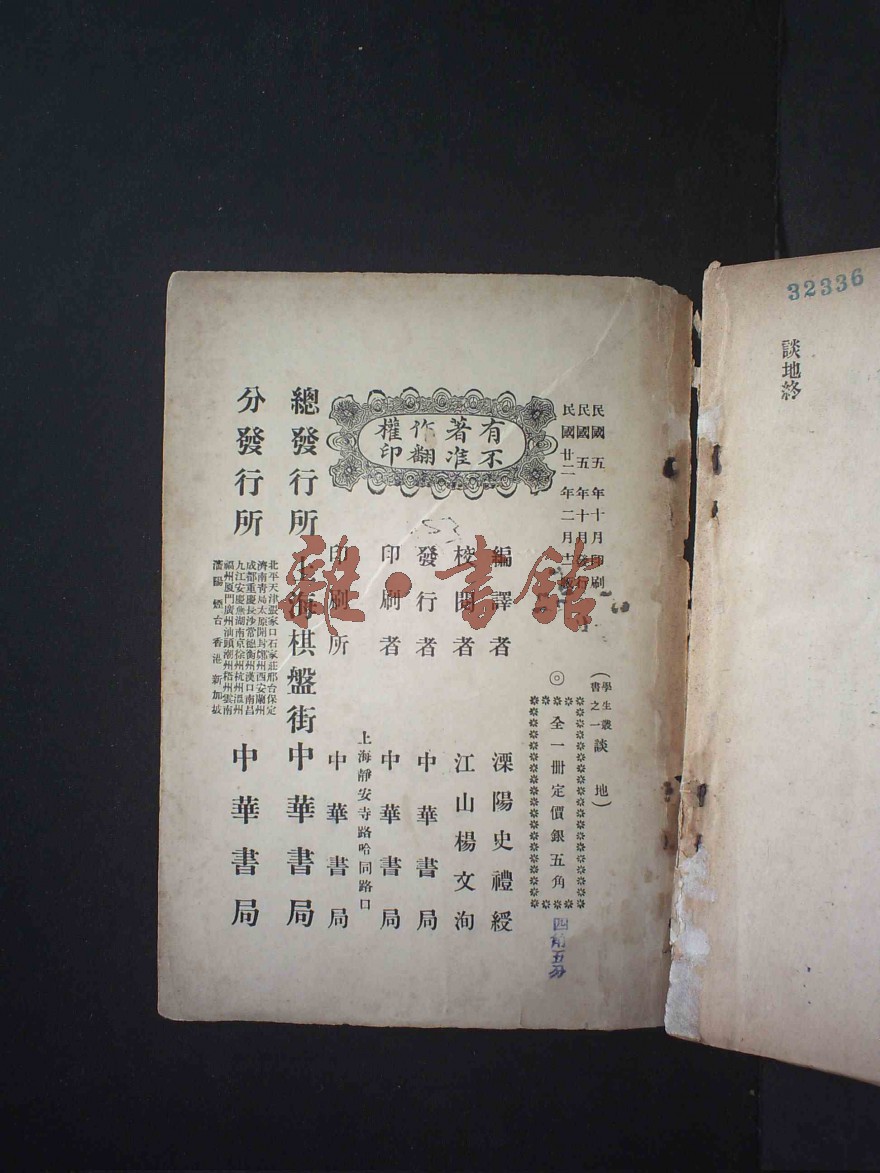 32336
談地終
民國五年十月印刷
民國五年十月發行
民國廿二年二月十二版
（學生叢書之一談地）
◎全一册定價銀五角
有著作權
不准翻印
編譯者 溧陽史禮綬
校閱者 江山楊文洵
發行者 中華書局
印刷者 中華書局
上海靜安寺路哈同路口
印刷所 中華書局
總發行所 上海棋盤街 中華書局
分發行所 中華書局
北平天津張家口石家莊邢台保定
濟南青島太原開封鄭州西安蘭州
成都重慶長沙常德衡州漢口南昌
九江安慶蕪湖南京徐州杭州溫州
福州厦門廣州汕頭潮州梧州雲南
瀋陽煙台香港新加坡
雜·書館